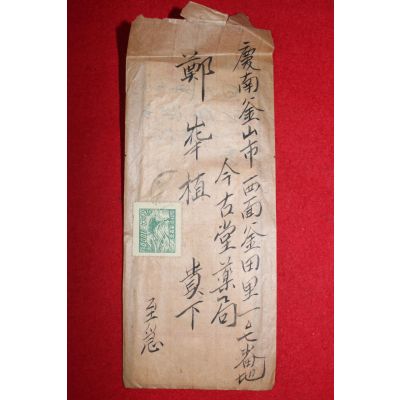 慶南釜山市西面釜田里一五七番地
今古堂藥局
鄭 植 貴下
至急